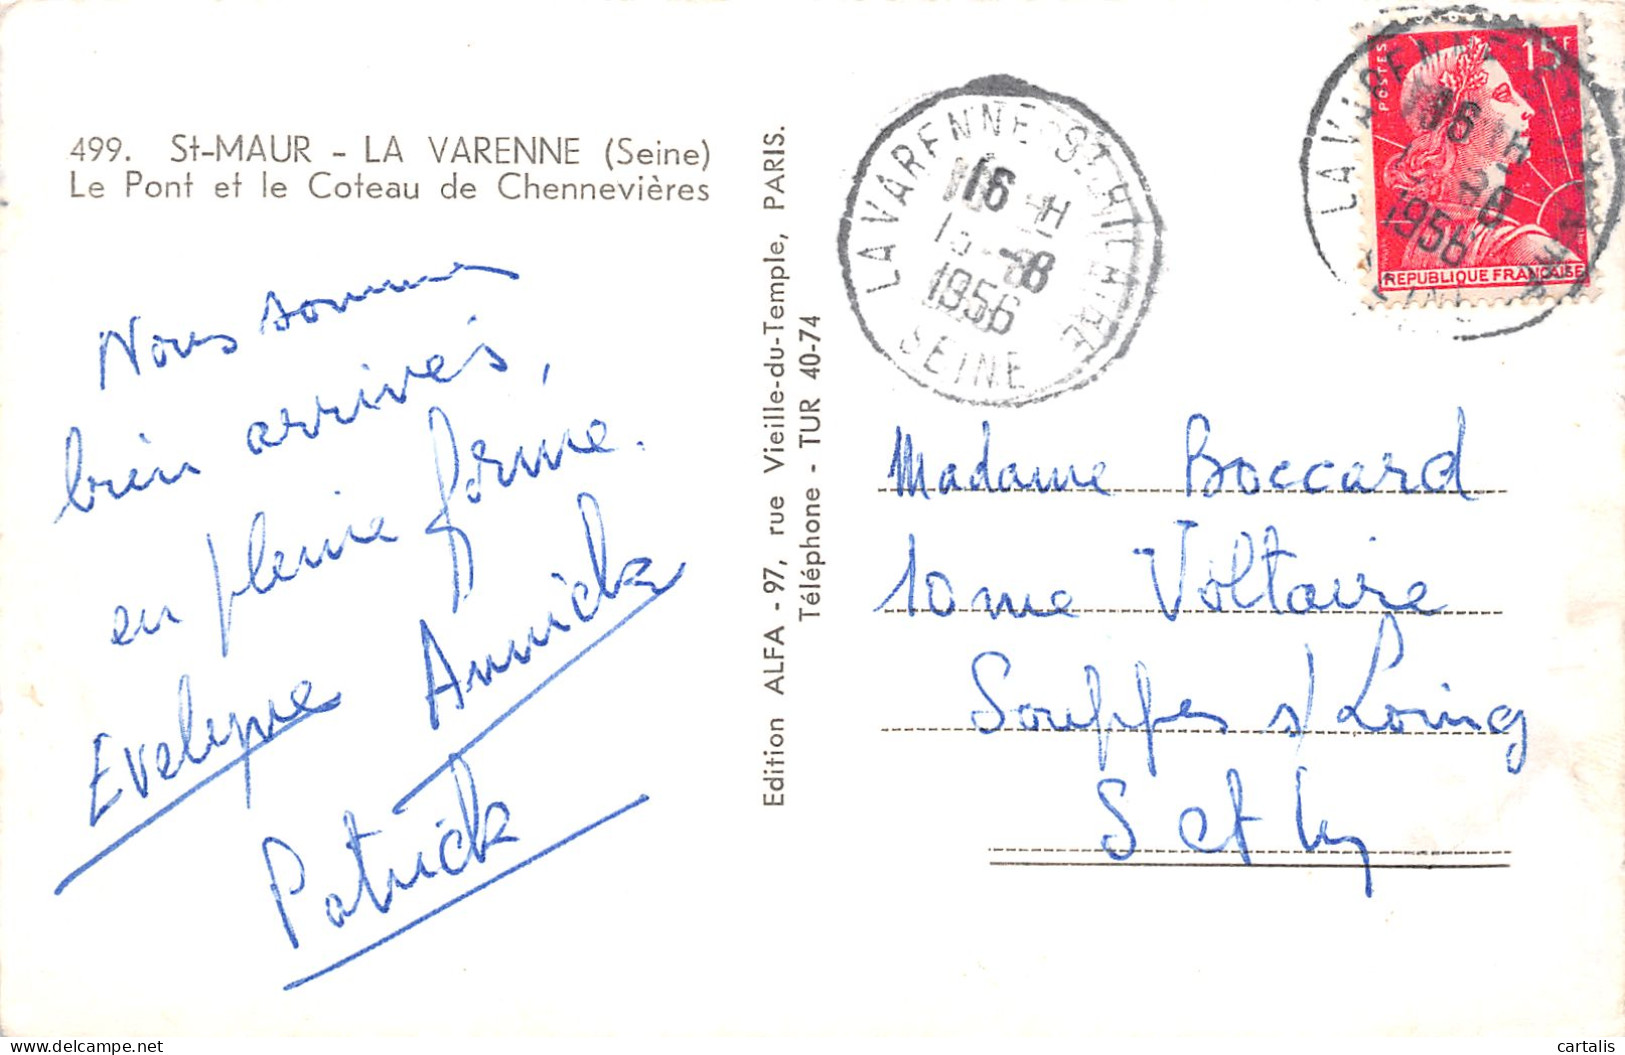 499. St-MAUR - LA VARENNE (Seine)
Le Pont et le Coteau de Chennevières
Nous sommes
bien arrivés,
en pleine forme.
Evelyne Annick
Patrick
Edition ALFA - 97, rue Vieille-du-Temple, PARIS.
Téléphone - TUR 40-74
LA VARENNE-ST-HILAIRE
16 H
-8
1956
SEINE
POSTES
15F
REPUBLIQUE FRANÇAISE
LA VARENNE
16 H
1956
Madame Boccard
10 rue Voltaire
Souppes s/ Loing
S et M
delcampe.net
cartalis